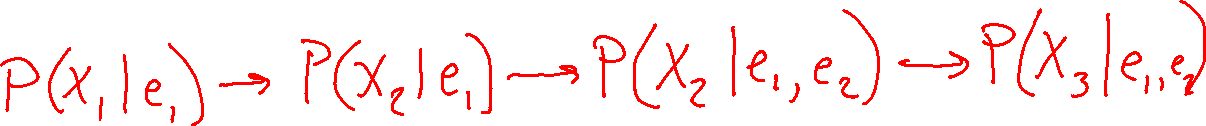 P(X₁|e₁) → P(X₂|e₁) → P(X₂|e₁,e₂) → P(X₃|e₁,e₂)